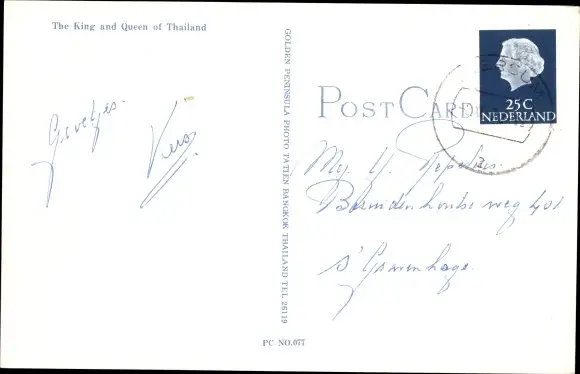 The King and Queen of Thailand
Groetjes.
Vera
GOLDEN PENINSULA PHOTO TATIEN BANGKOK THAILAND TEL 26119
POST CARD
25C
NEDERLAND
Mej.
weg 401
s' Gravenhage.
PC NO.077